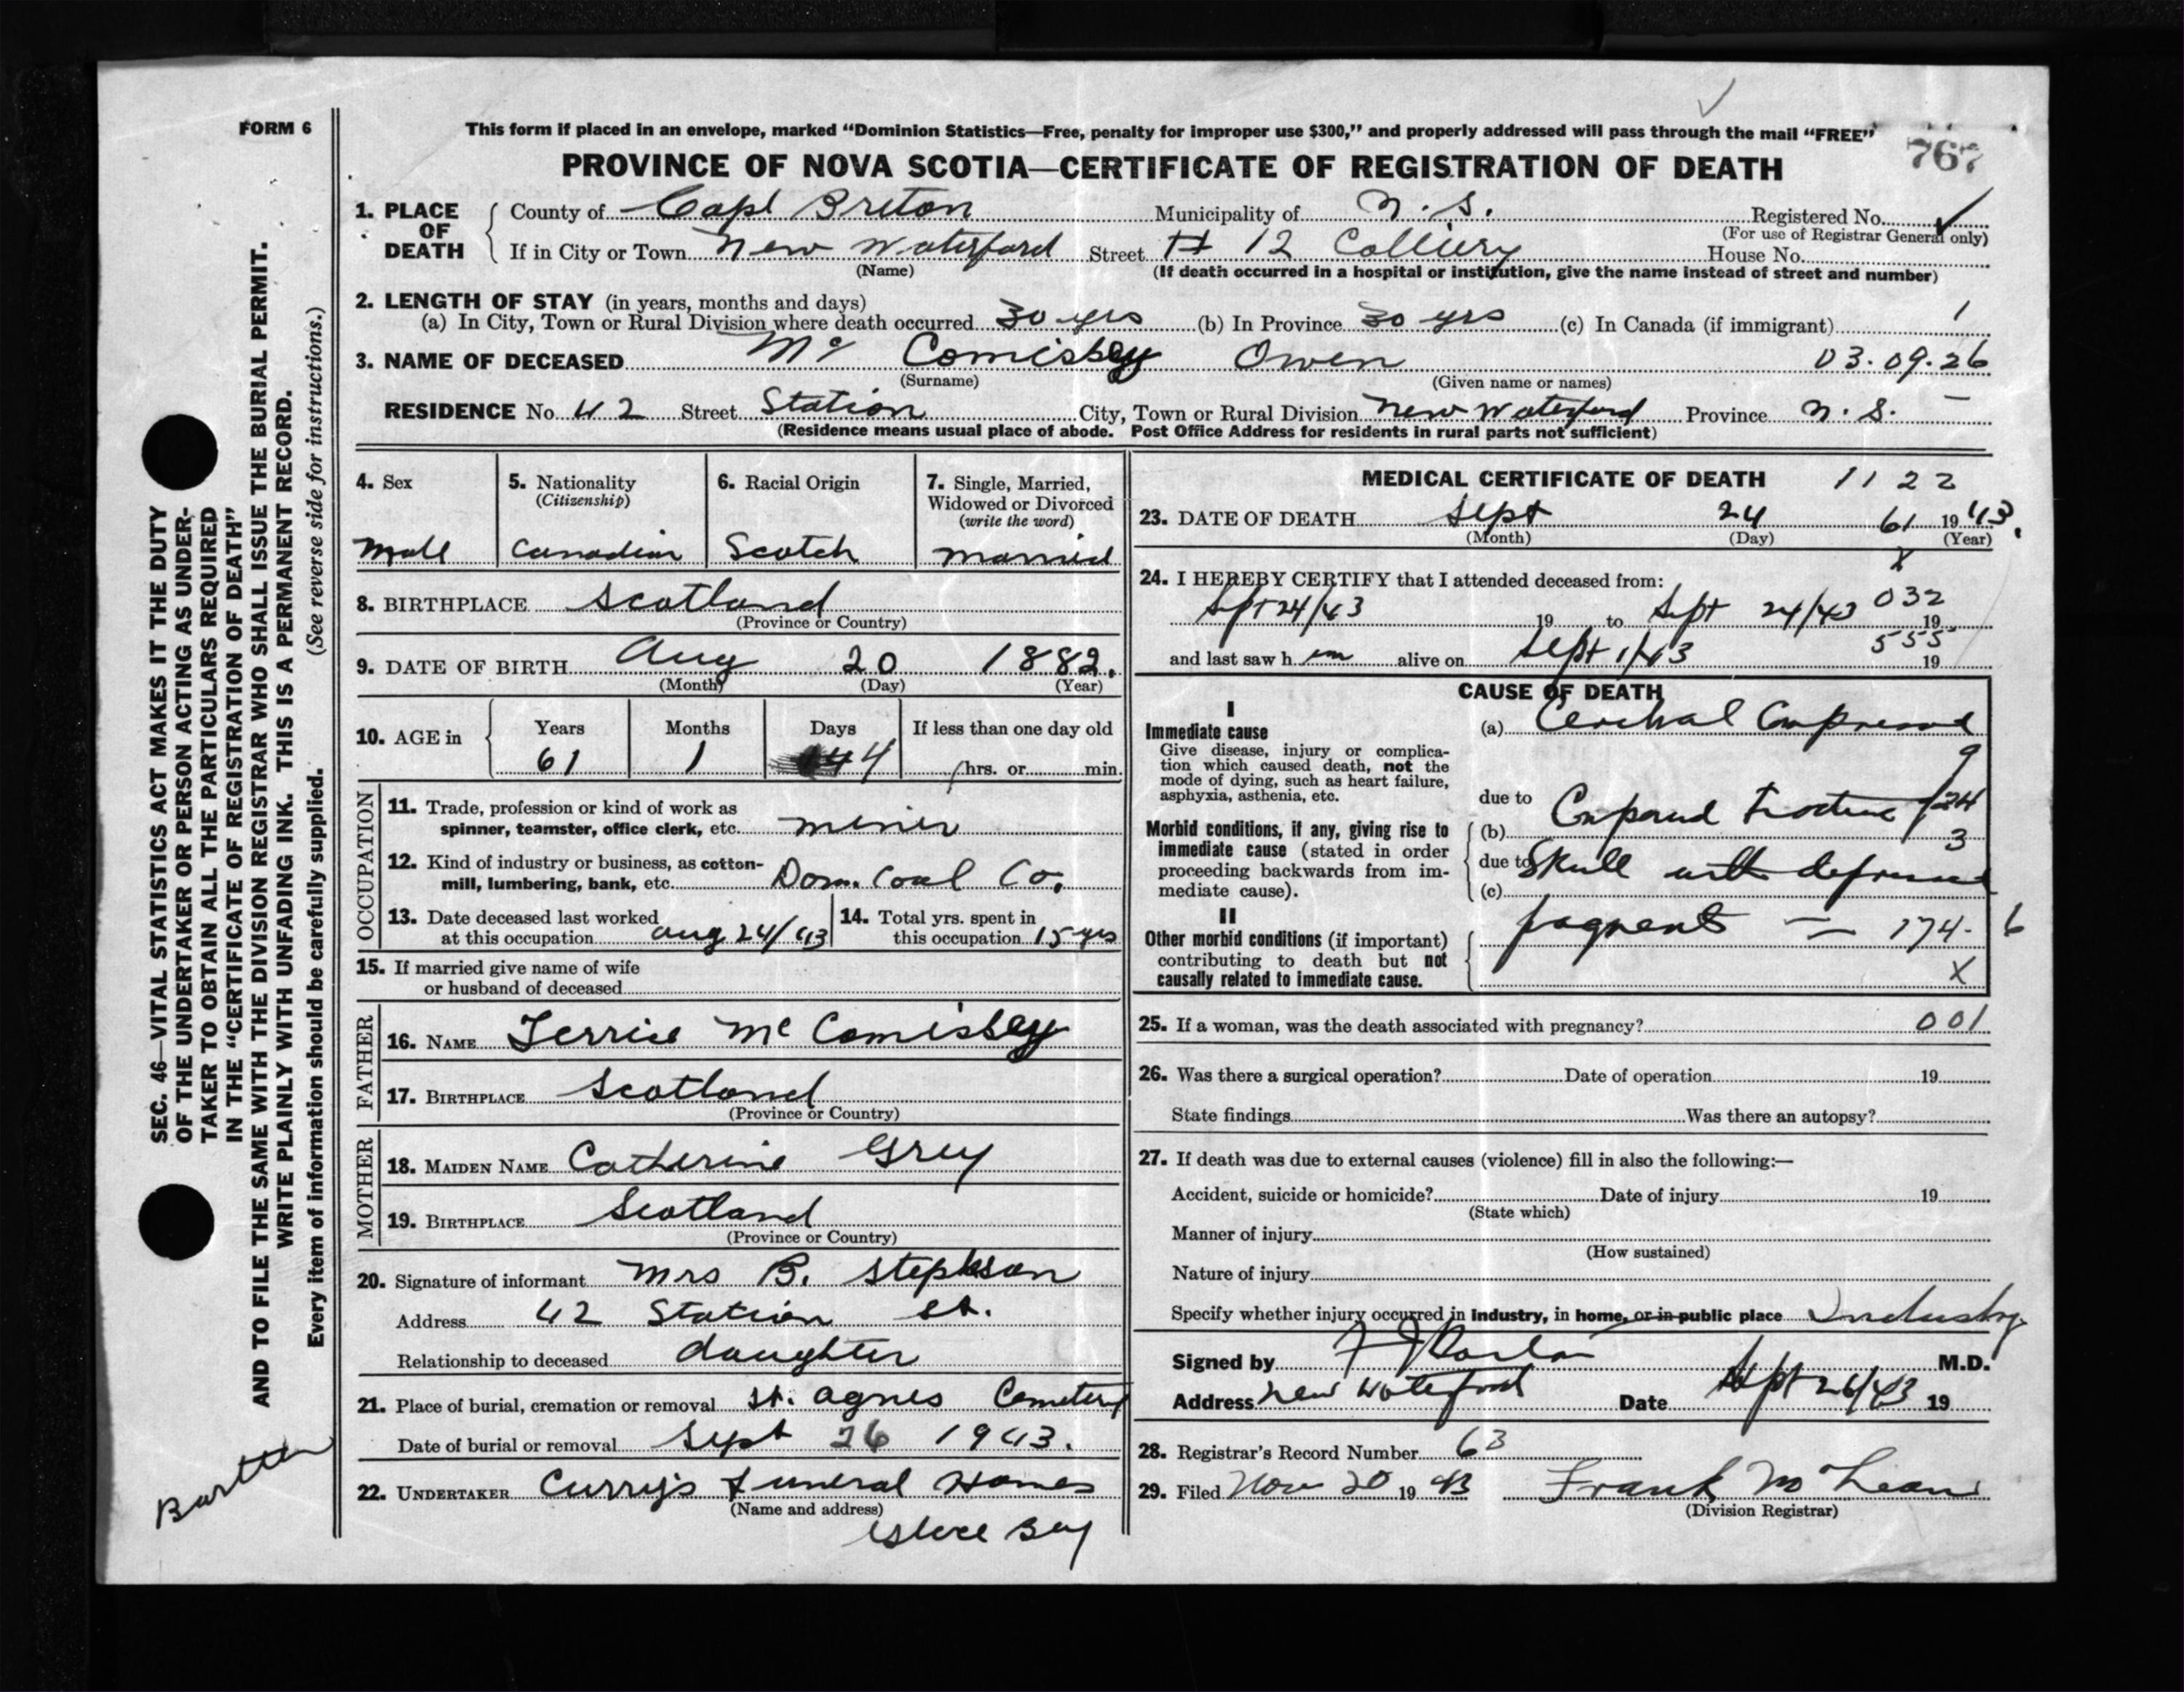 FORM 6
This form if placed in an envelope, marked “Dominion Statistics—Free, penalty for improper use $300,” and properly addressed will pass through the mail “FREE”
767
PROVINCE OF NOVA SCOTIA—CERTIFICATE OF REGISTRATION OF DEATH
1. PLACE OF DEATH
County of Cape Breton Municipality of N.S. Registered No.
(For use of Registrar General only)
If in City or Town New Waterford Street # 12 Colliery House No.
(Name) (If death occurred in a hospital or institution, give the name instead of street and number)
2. LENGTH OF STAY (in years, months and days)
(a) In City, Town or Rural Division where death occurred 30 yrs (b) In Province 30 yrs (c) In Canada (if immigrant) 1
3. NAME OF DECEASED Mc Comiskey Owen 03.09.26
(Surname) (Given name or names)
RESIDENCE No. 42 Street Station City, Town or Rural Division New Waterford Province N.S. –
(Residence means usual place of abode. Post Office Address for residents in rural parts not sufficient)
4. Sex
Male
5. Nationality
(Citizenship)
Canadian
6. Racial Origin
Scotch
7. Single, Married, Widowed or Divorced
(write the word)
Married
8. BIRTHPLACE Scotland
(Province or Country)
9. DATE OF BIRTH Aug 20 1882.
(Month) (Day) (Year)
10. AGE in Years Months Days If less than one day old
61 1 4 hrs. or min.
OCCUPATION
11. Trade, profession or kind of work as
spinner, teamster, office clerk, etc. miner
12. Kind of industry or business, as cotton-
mill, lumbering, bank, etc. Dom. Coal Co.
13. Date deceased last worked
at this occupation Aug 24/43
14. Total yrs. spent in
this occupation 15 yrs
15. If married give name of wife
or husband of deceased
FATHER
16. NAME Terrise Mc Comiskey
17. BIRTHPLACE Scotland
(Province or Country)
MOTHER
18. MAIDEN NAME Catherine Grey
19. BIRTHPLACE Scotland
(Province or Country)
20. Signature of informant Mrs B. Stephson
Address 42 Station St.
Relationship to deceased daughter
21. Place of burial, cremation or removal St. Agnes Cemetery
Date of burial or removal Sept 26 1943.
22. UNDERTAKER Curry's Funeral Homes
(Name and address)
Glace Bay
MEDICAL CERTIFICATE OF DEATH 1122
23. DATE OF DEATH Sept 24 61 1943.
(Month) (Day) (Year)
X
24. I HEREBY CERTIFY that I attended deceased from:
Sept 24/43 19 to Sept 24/43 19 032
555
and last saw h im alive on Sept 1/43 19
CAUSE OF DEATH
I
Immediate cause
Give disease, injury or complica-
tion which caused death, not the
mode of dying, such as heart failure,
asphyxia, asthenia, etc.
(a) Cerebral Compression
9
due to
Morbid conditions, if any, giving rise to
immediate cause (stated in order
proceeding backwards from im-
mediate cause).
(b) Compound Fracture
3
due to Skull with depressed
(c)
II
Other morbid conditions (if important)
contributing to death but not
causally related to immediate cause.
fragments — 174- 6
X
25. If a woman, was the death associated with pregnancy? 001
26. Was there a surgical operation? Date of operation 19
State findings Was there an autopsy?
27. If death was due to external causes (violence) fill in also the following:—
Accident, suicide or homicide? Date of injury 19
(State which)
Manner of injury
(How sustained)
Nature of injury
Specify whether injury occurred in industry, in home, or in public place Industry
Signed by M.D.
Address New Waterford Date Sept 26/43 19
28. Registrar's Record Number 63
29. Filed Nov 20 1943 Frank McLean
(Division Registrar)
SEC. 46—VITAL STATISTICS ACT MAKES IT THE DUTY
OF THE UNDERTAKER OR PERSON ACTING AS UNDER-
TAKER TO OBTAIN ALL THE PARTICULARS REQUIRED
IN THE “CERTIFICATE OF REGISTRATION OF DEATH”
AND TO FILE THE SAME WITH THE DIVISION REGISTRAR WHO SHALL ISSUE THE BURIAL PERMIT.
WRITE PLAINLY WITH UNFADING INK. THIS IS A PERMANENT RECORD.
Every item of information should be carefully supplied. (See reverse side for instructions.)